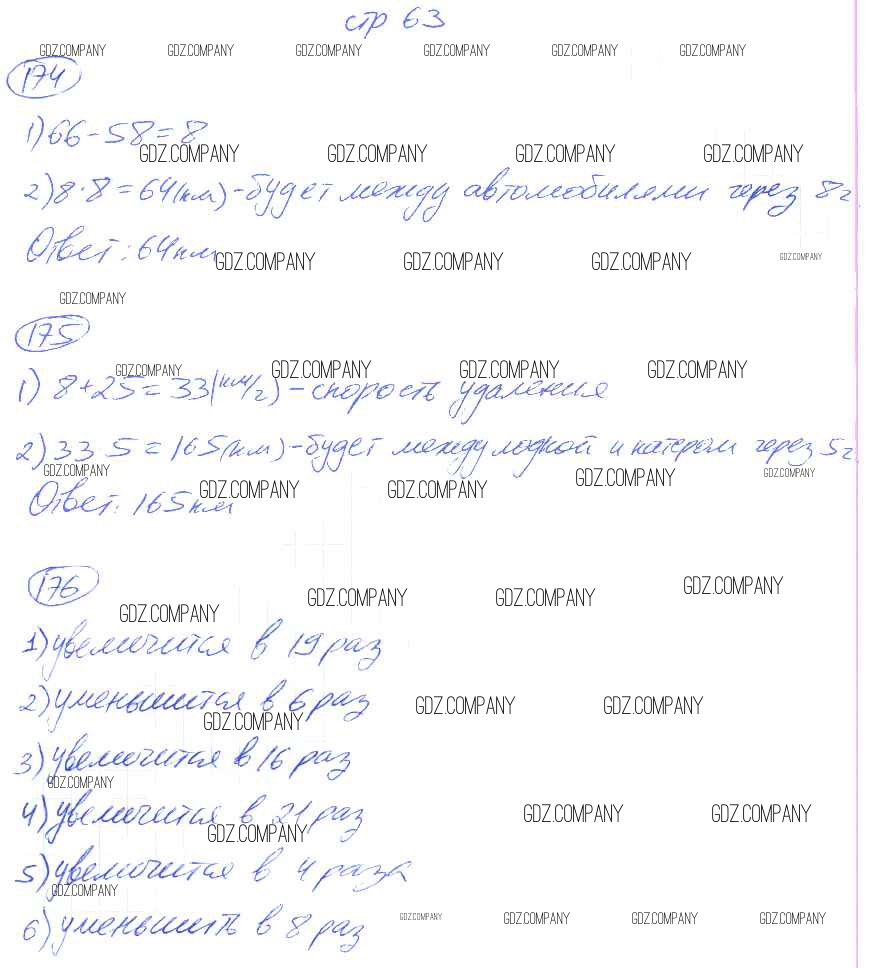 стр 63
GDZ.COMPANY GDZ.COMPANY GDZ.COMPANY GDZ.COMPANY GDZ.COMPANY GDZ.COMPANY
174
1) 66 - 58 = 8
GDZ.COMPANY GDZ.COMPANY GDZ.COMPANY GDZ.COMPANY
2) 8 · 8 = 64 (км) - будет между автомобилями через 8 ч
Ответ: 64 км
GDZ.COMPANY GDZ.COMPANY GDZ.COMPANY GDZ.COMPANY
GDZ.COMPANY
175
GDZ.COMPANY GDZ.COMPANY GDZ.COMPANY GDZ.COMPANY
1) 8 + 25 = 33 (км/ч) - скорость удаления
2) 33 · 5 = 165 (км) - будет между лодкой и катером через 5 ч
GDZ.COMPANY GDZ.COMPANY GDZ.COMPANY GDZ.COMPANY GDZ.COMPANY
Ответ: 165 км
176
GDZ.COMPANY GDZ.COMPANY GDZ.COMPANY GDZ.COMPANY
1) увеличится в 19 раз
2) уменьшится в 6 раз
GDZ.COMPANY GDZ.COMPANY GDZ.COMPANY
3) увеличится в 16 раз
GDZ.COMPANY
4) увеличится в 21 раз
GDZ.COMPANY GDZ.COMPANY GDZ.COMPANY
5) увеличится в 4 раза
GDZ.COMPANY
6) уменьшить в 8 раз
GDZ.COMPANY GDZ.COMPANY GDZ.COMPANY GDZ.COMPANY